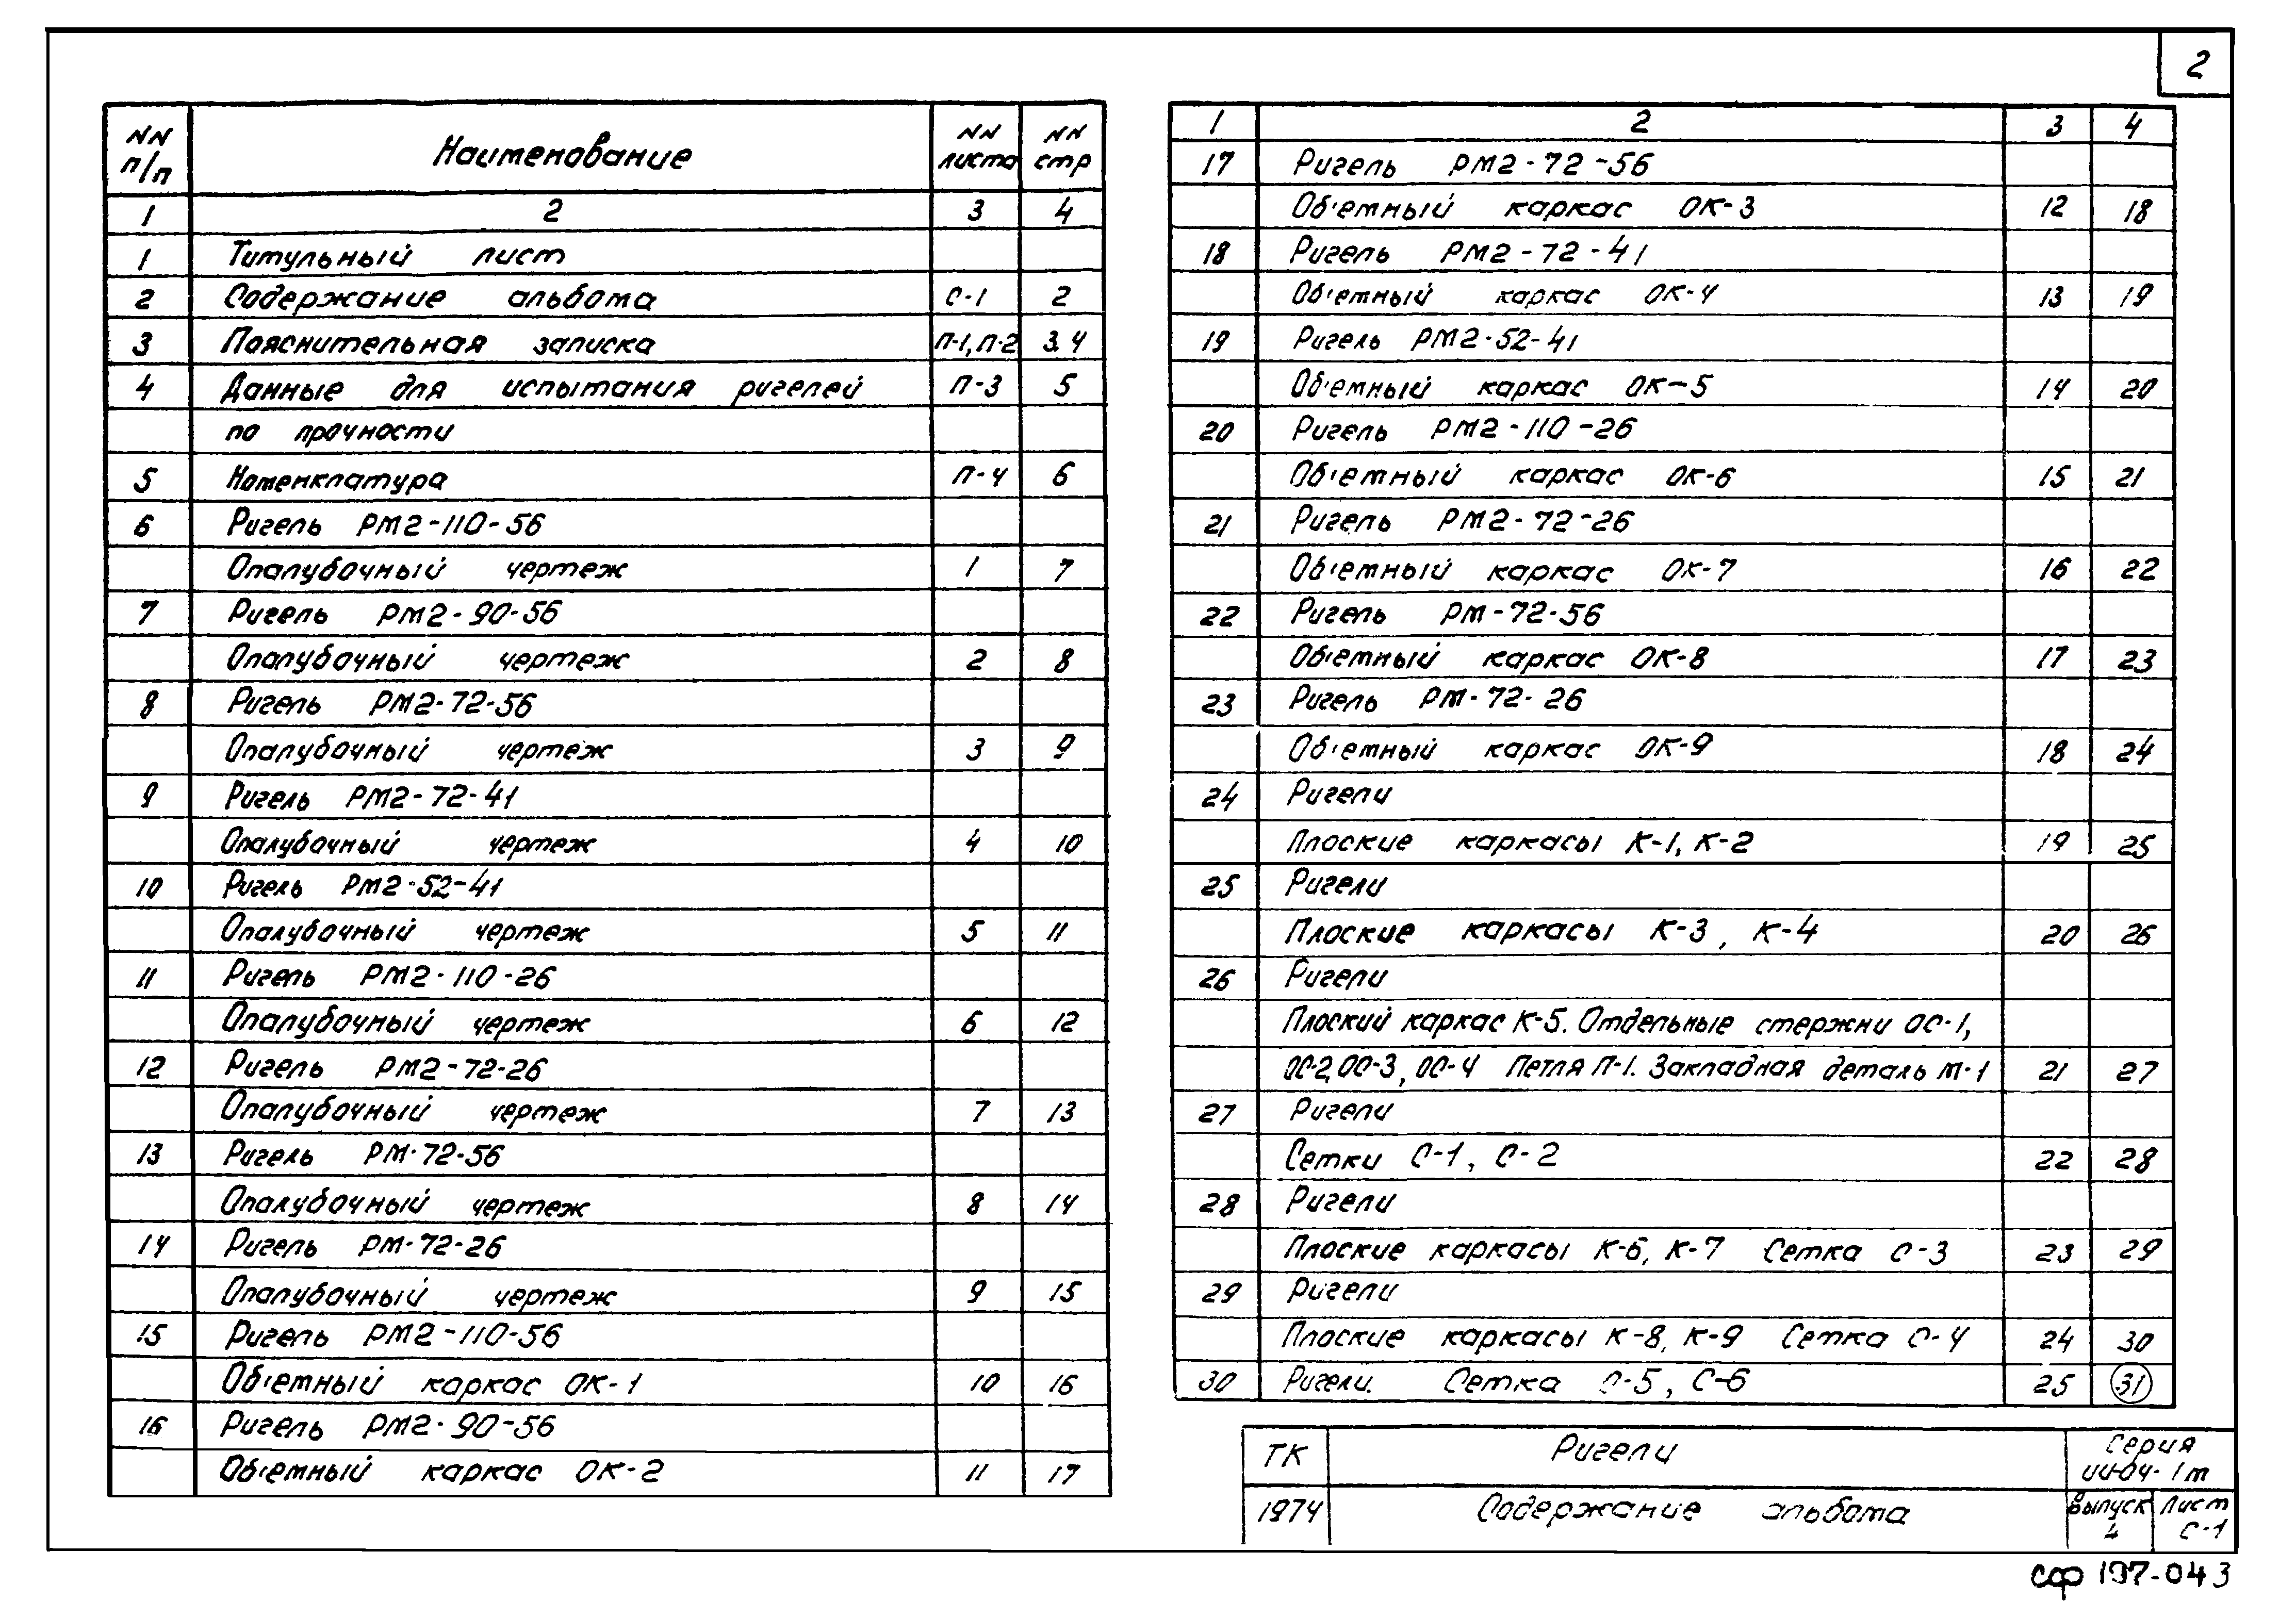 2
NN п/п Наименование NN листа NN стр
1 2 3 4
1 Титульный лист
2 Содержание альбома С-1 2
3 Пояснительная записка П-1, П-2 3.4
4 Данные для испытания ригелей П-3 5
по прочности
5 Номенклатура П-4 6
6 Ригель РМ2-110-56
Опалубочный чертеж 1 7
7 Ригель РМ2-90-56
Опалубочный чертеж 2 8
8 Ригель РМ2-72-56
Опалубочный чертеж 3 9
9 Ригель РМ2-72-41
Опалубочный чертеж 4 10
10 Ригель РМ2-52-41
Опалубочный чертеж 5 11
11 Ригель РМ2-110-26
Опалубочный чертеж 6 12
12 Ригель РМ2-72-26
Опалубочный чертеж 7 13
13 Ригель РМ-72-56
Опалубочный чертеж 8 14
14 Ригель РМ-72-26
Опалубочный чертеж 9 15
15 Ригель РМ2-110-56
Об'емный каркас ОК-1 10 16
16 Ригель РМ2-90-56
Об'емный каркас ОК-2 11 17
1 2 3 4
17 Ригель РМ2-72-56
Об'емный каркас ОК-3 12 18
18 Ригель РМ2-72-41
Об'емный каркас ОК-4 13 19
19 Ригель РМ2-52-41
Об'емный каркас ОК-5 14 20
20 Ригель РМ2-110-26
Об'емный каркас ОК-6 15 21
21 Ригель РМ2-72-26
Об'емный каркас ОК-7 16 22
22 Ригель РМ-72-56
Об'емный каркас ОК-8 17 23
23 Ригель РМ-72-26
Об'емный каркас ОК-9 18 24
24 Ригели
Плоские каркасы К-1, К-2 19 25
25 Ригели
Плоские каркасы К-3, К-4 20 26
26 Ригели
Плоский каркас К-5. Отдельные стержни ОС-1,
ОС-2, ОС-3, ОС-4 Петля П-1. Закладная деталь М-1 21 27
27 Ригели
Сетки С-1, С-2 22 28
28 Ригели
Плоские каркасы К-6, К-7 Сетка С-3 23 29
29 Ригели
Плоские каркасы К-8, К-9 Сетка С-4 24 30
30 Ригели. Сетка С-5, С-6 25 31
ТК Ригели Серия ИИ-04-1т
1974 Содержание альбома Выпуск 4 Лист С-1
сф 197-04 3